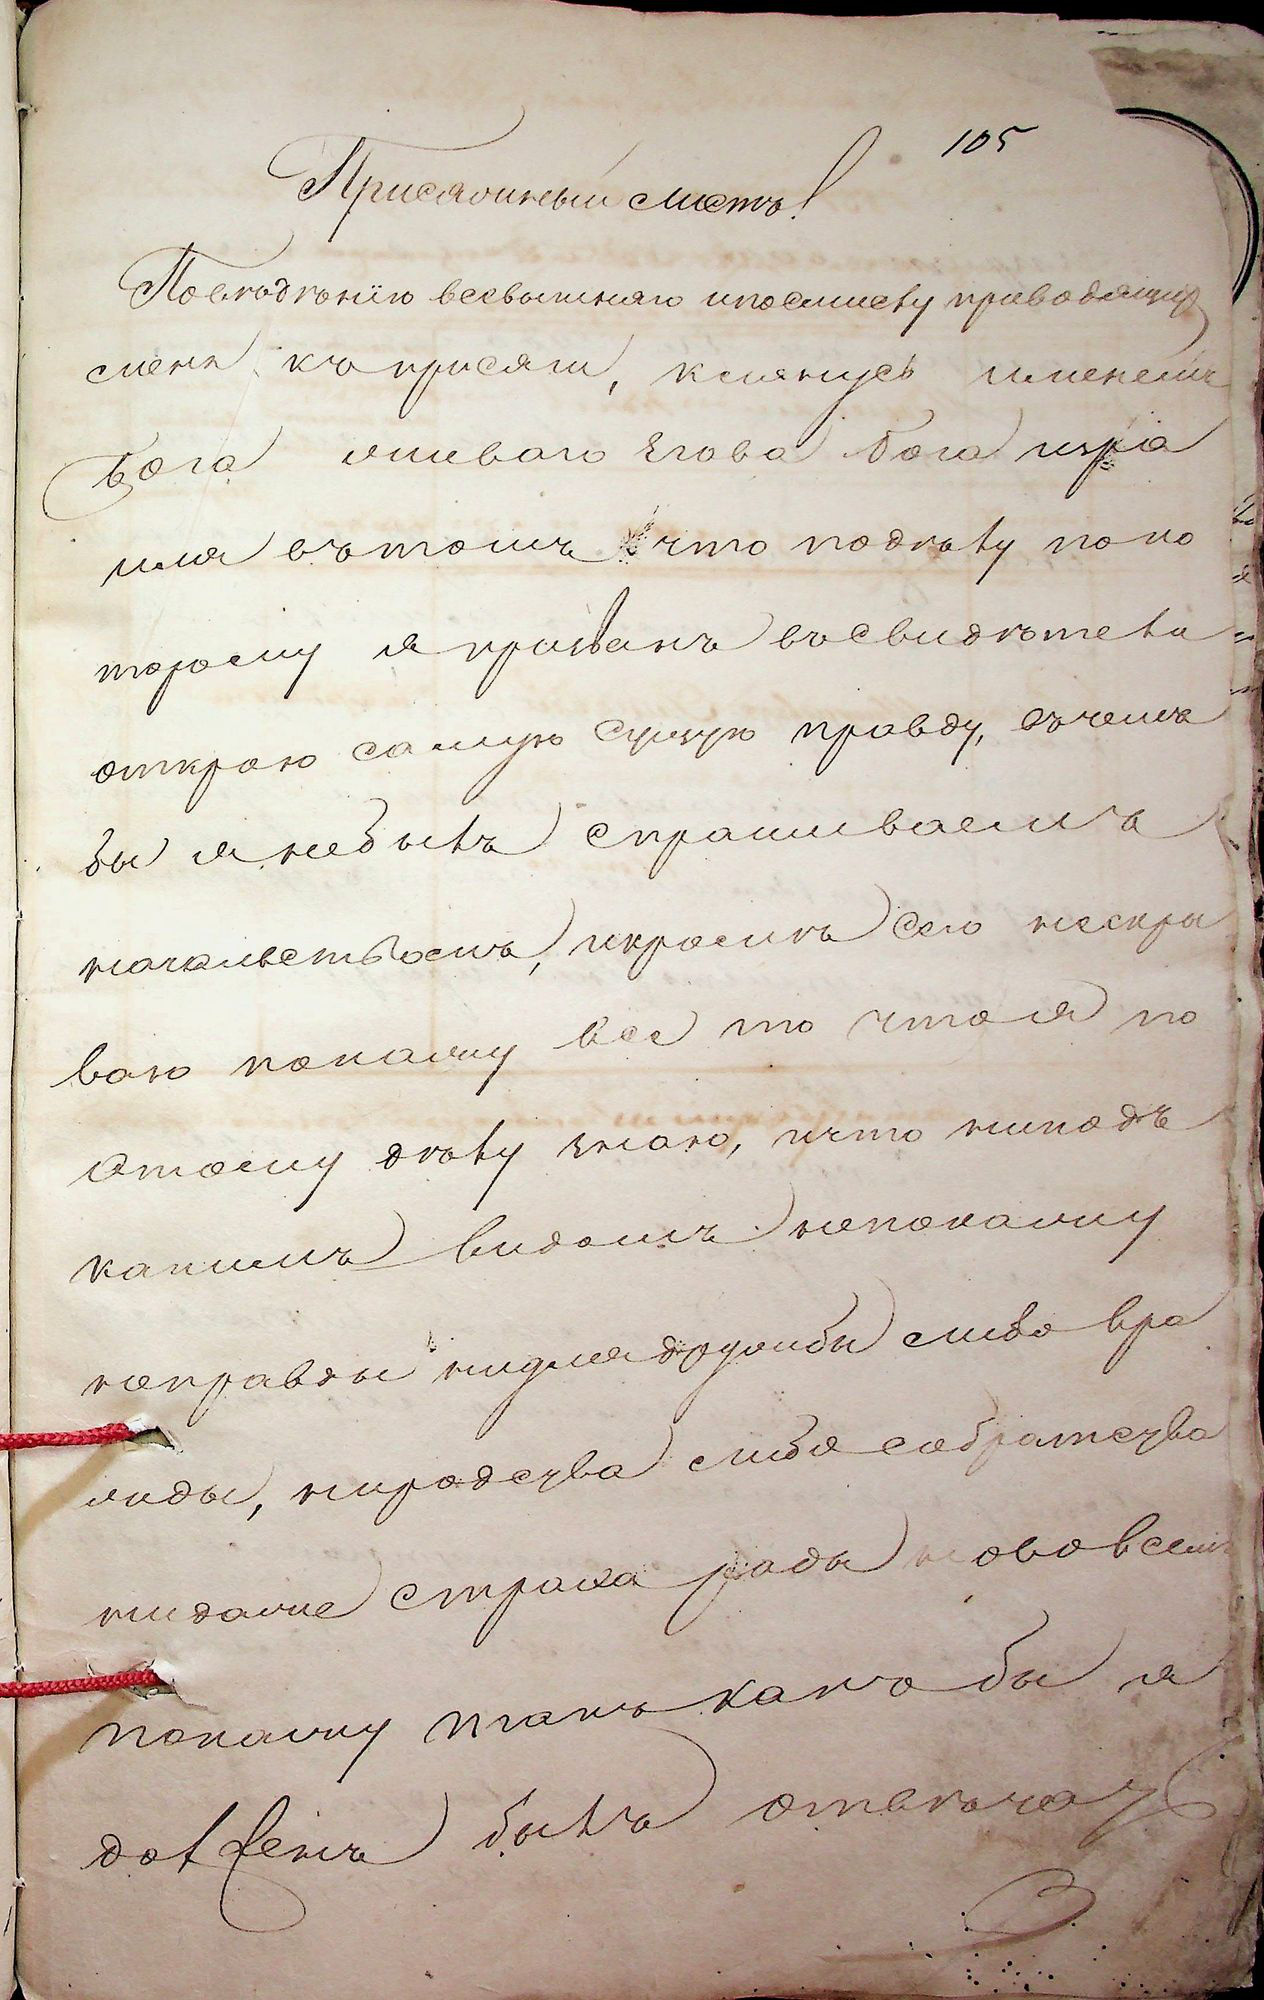 105
Присяжный листъ
Повѣдѣнію всевышняго ипосмыслу приводящихъ
меня къ присяги, клянусь именемъ
Бога живаго Егова Бога изра
иля вътомъ что подѣлу пако
торому я призванъ восвидѣтели
открою самую сущую правду, очемъ
бы я небылъ спрашиваемъ
начальствомъ, икромѣ сего нескры
ваю покажу все то что я по
этому дѣлу знаю, ичто ниподъ
какимъ видомъ непокажу
неправды нидлядружбы либо вра
жды, ниродства либо собратства
нидаже страха рады нововсемъ
покажу такъ какъ бы я
долженъ былъ отвѣчать